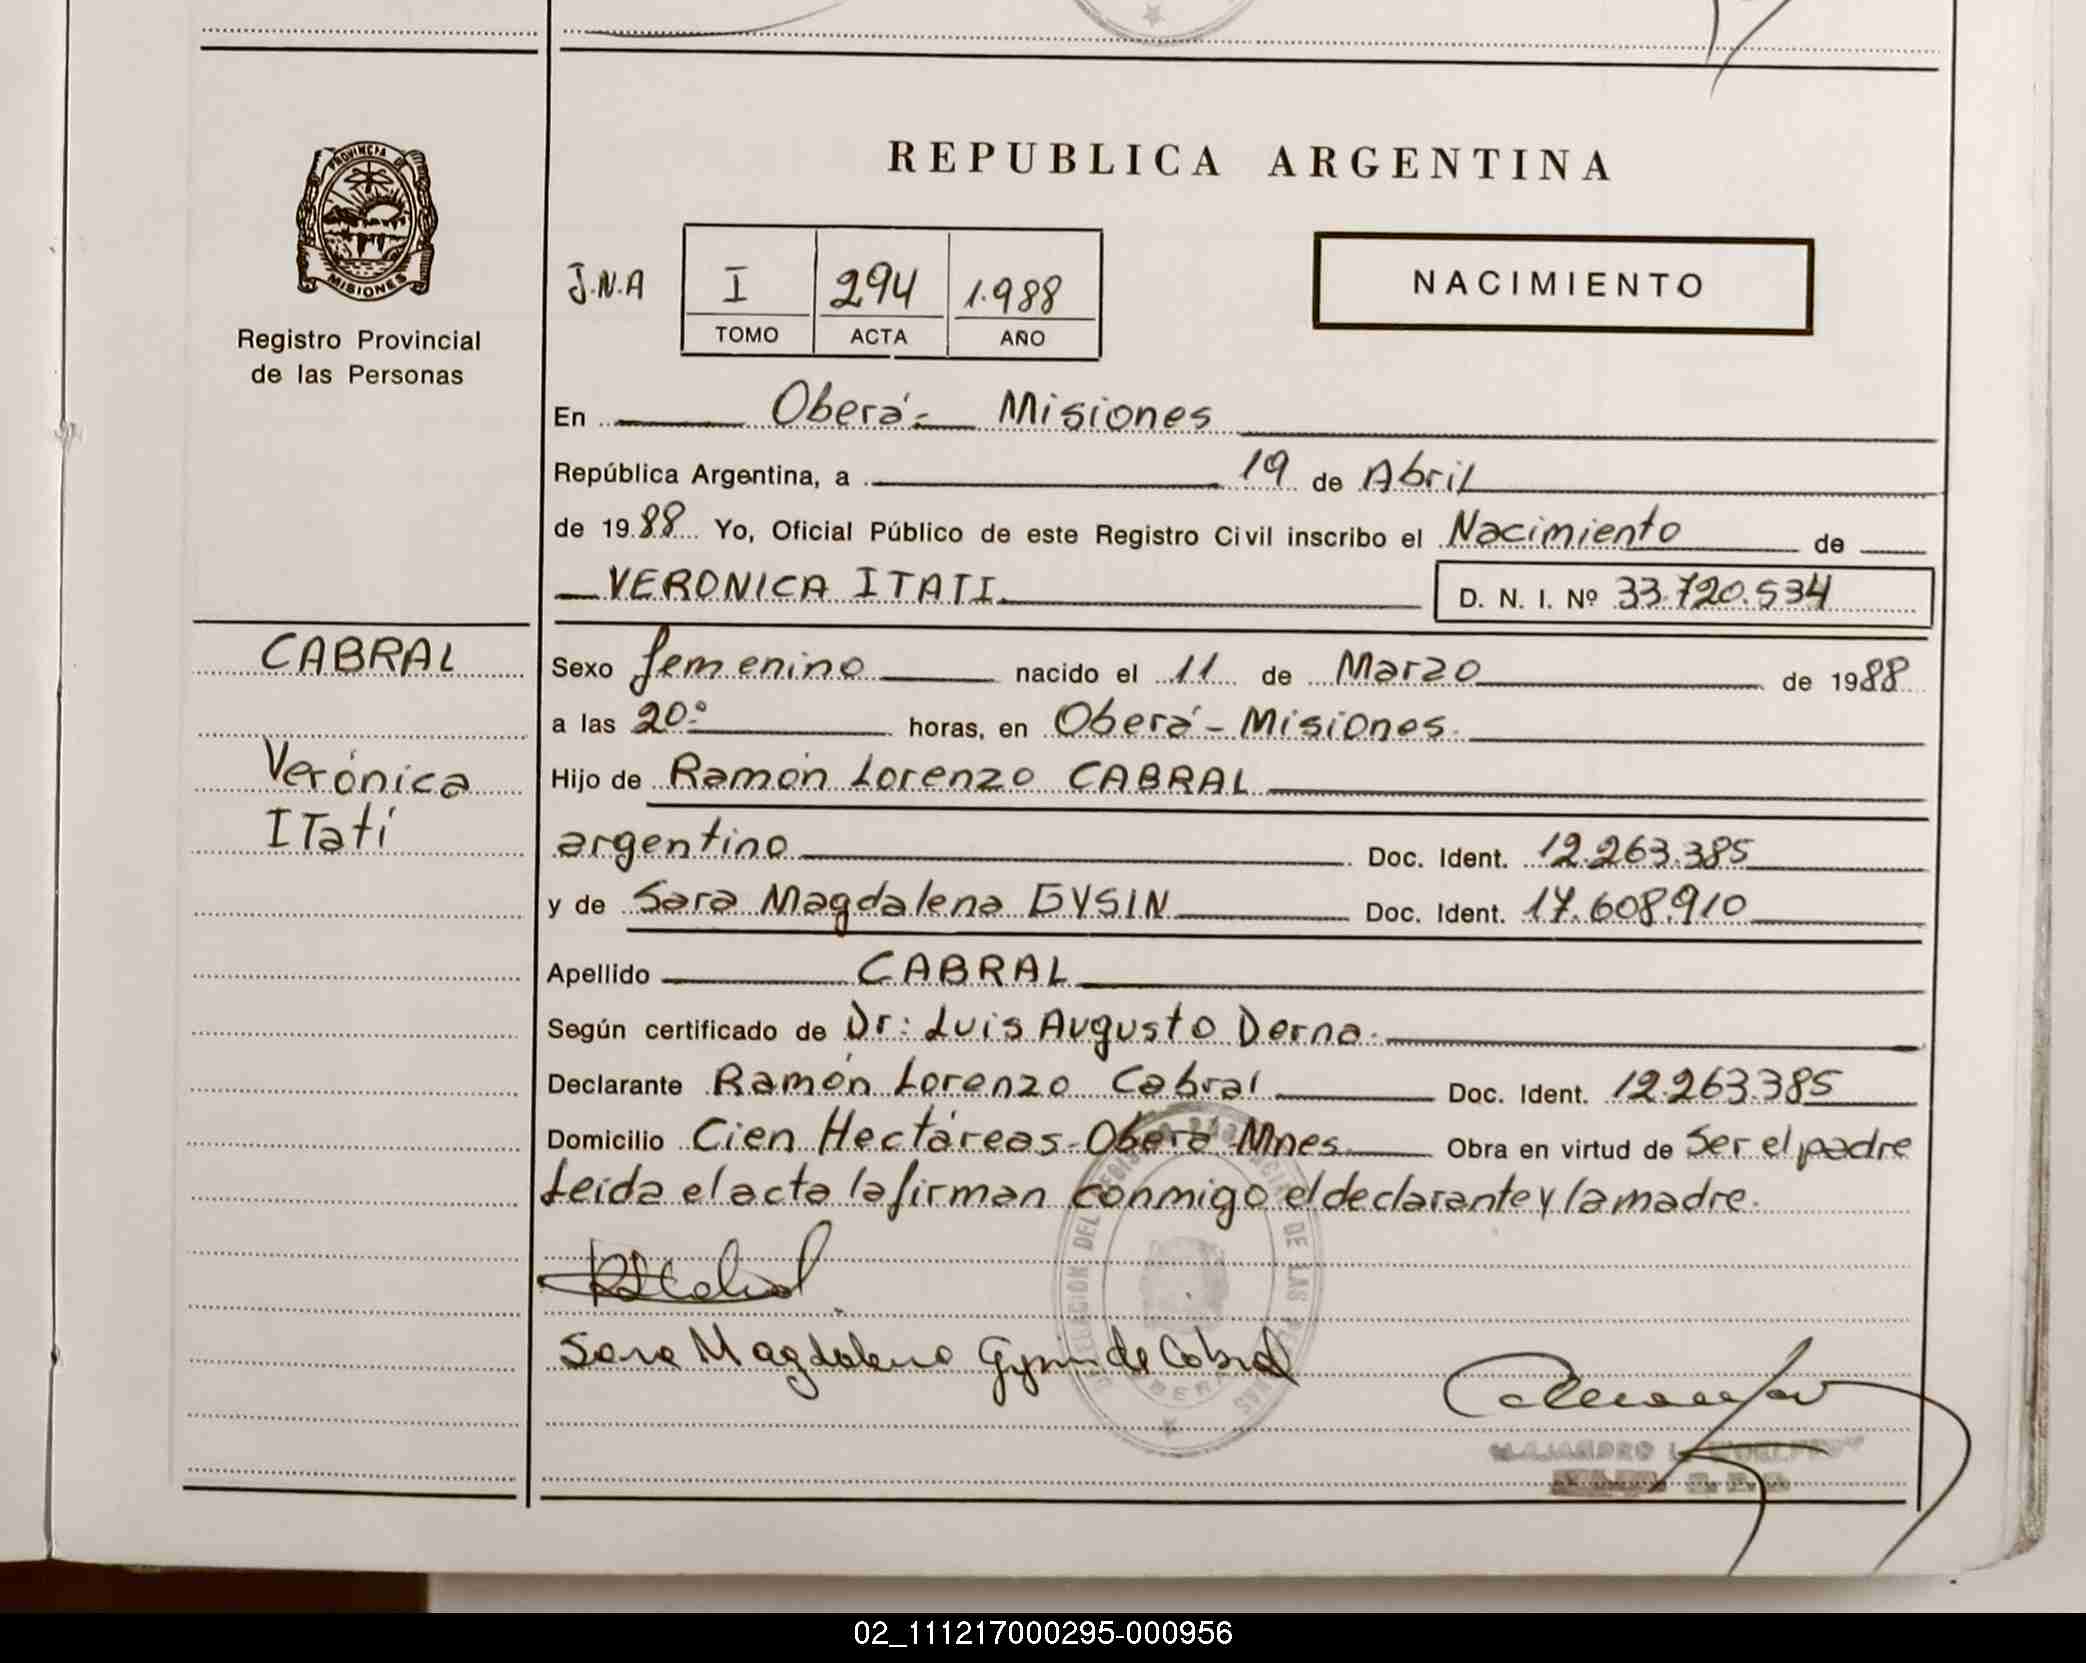 PROVINCIA DE
MISIONES
Registro Provincial
de las Personas
CABRAL
Verónica
ITatí
REPUBLICA ARGENTINA
J.N.A I 294 1.988
TOMO ACTA AÑO
NACIMIENTO
En Oberá - Misiones
República Argentina, a 19 de Abril
de 19 88 Yo, Oficial Público de este Registro Civil inscribo el Nacimiento de
VERONICA ITATI D. N. I. Nº 33.720.534
Sexo femenino nacido el 11 de Marzo de 1988
a las 20º horas, en Oberá - Misiones.
Hijo de Ramón Lorenzo CABRAL
argentino Doc. Ident. 12.263.385
y de Sara Magdalena GYSIN Doc. Ident. 17.608.910
Apellido CABRAL
Según certificado de Dr: Luis Augusto Derna.
Declarante Ramón Lorenzo Cabral Doc. Ident. 12.263.385
Domicilio Cien Hectáreas - Oberá - Mnes Obra en virtud de Ser el padre
Leída el acta la firman conmigo el declarante y la madre.
Sara Magdalena Gysin de Cabral
DELEGACION DEL REGISTRO PROVINCIAL DE LAS PERSONAS
OBERA
02_111217000295-000956